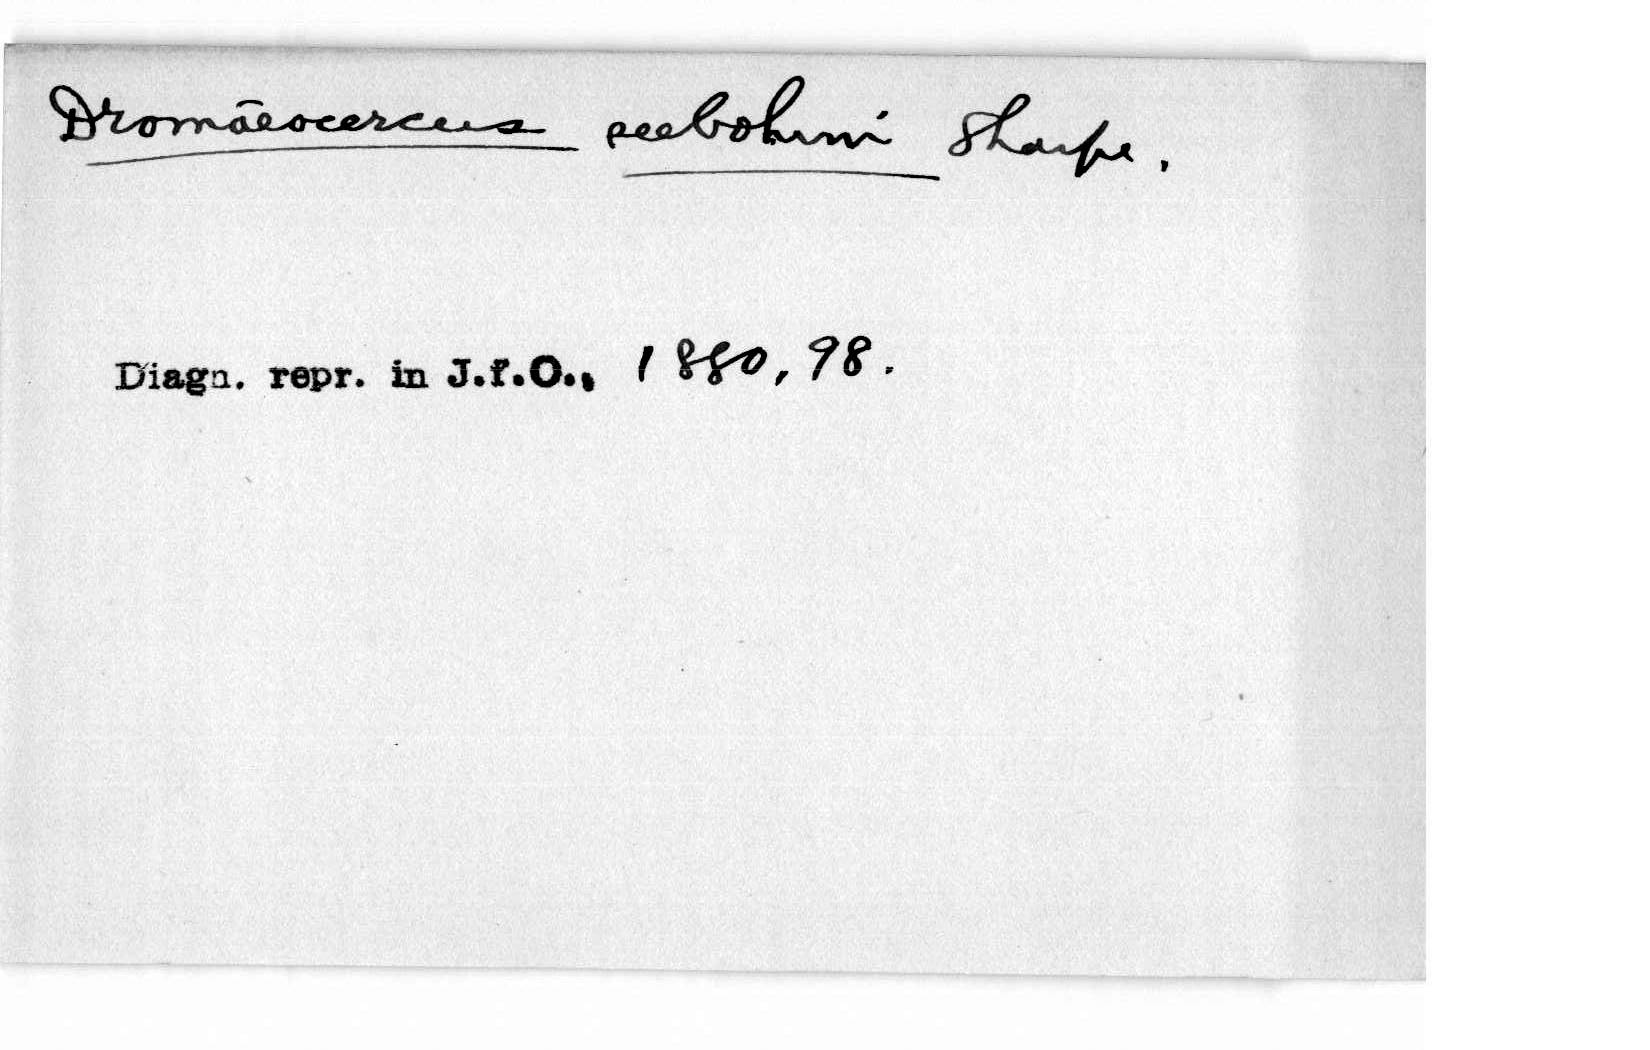 Dromaeocercus seebohmi Sharpe.
Diagn. repr. in J.f.O., 1880, 98.